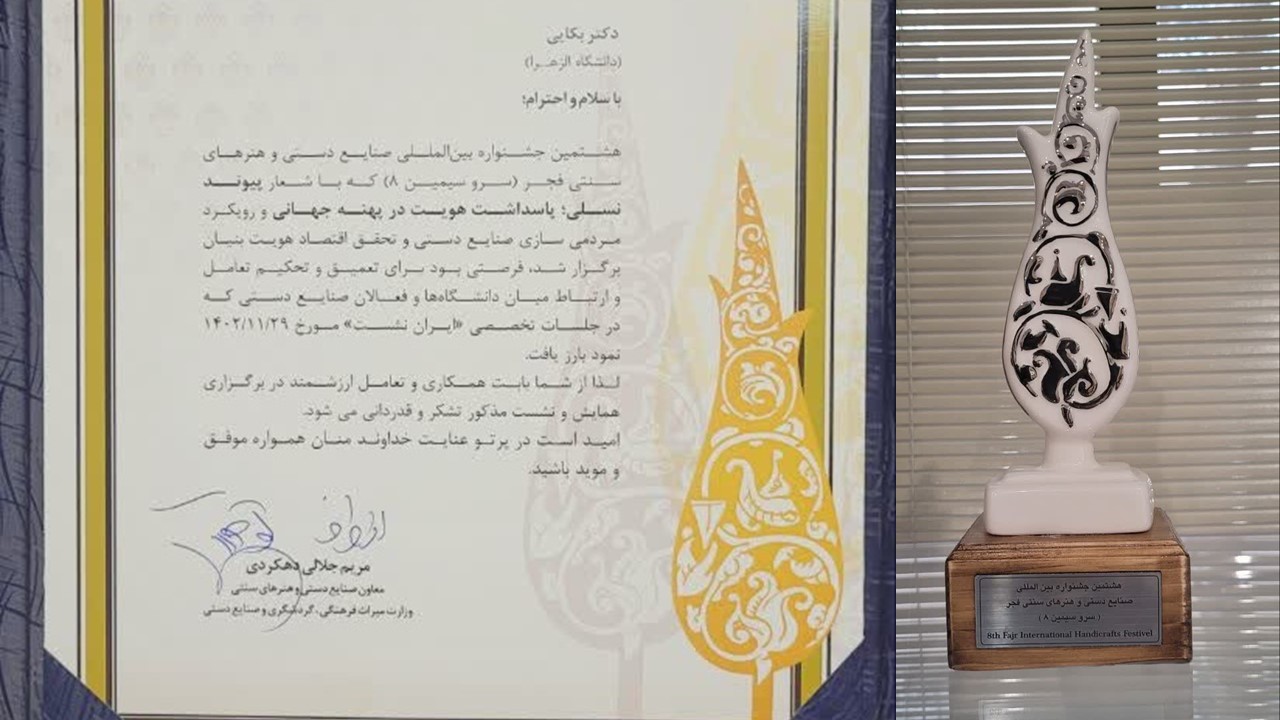 دکتر بکایی
(دانشگاه الزهرا)
با سلام و احترام؛
هشتمین جشنواره بین‌المللی صنایع دستی و هنرهای
سنتی فجر (سرو سیمین ۸) که با شعار پیوند
نسلی؛ پاسداشت هویت در پهنه جهانی و رویکرد
مردمی سازی صنایع دستی و تحقق اقتصاد هویت بنیان
برگزار شد، فرصتی بود برای تعمیق و تحکیم تعامل
و ارتباط میان دانشگاه‌ها و فعالان صنایع دستی که
در جلسات تخصصی «ایران نشست» مورخ ۱۴۰۲/۱۱/۲۹
نمود بارز یافت.
لذا از شما بابت همکاری و تعامل ارزشمند در برگزاری
همایش و نشست مذکور تشکر و قدردانی می شود.
امید است در پرتو عنایت خداوند منان همواره موفق
و موید باشید.
مریم جلالی دهکردی
معاون صنایع دستی و هنرهای سنتی
وزارت میراث فرهنگی، گردشگری و صنایع دستی
هشتمین جشنواره بین المللی
صنایع دستی و هنرهای سنتی فجر
( سرو سیمین ۸ )
8th Fajr International Handicrafts Festivel